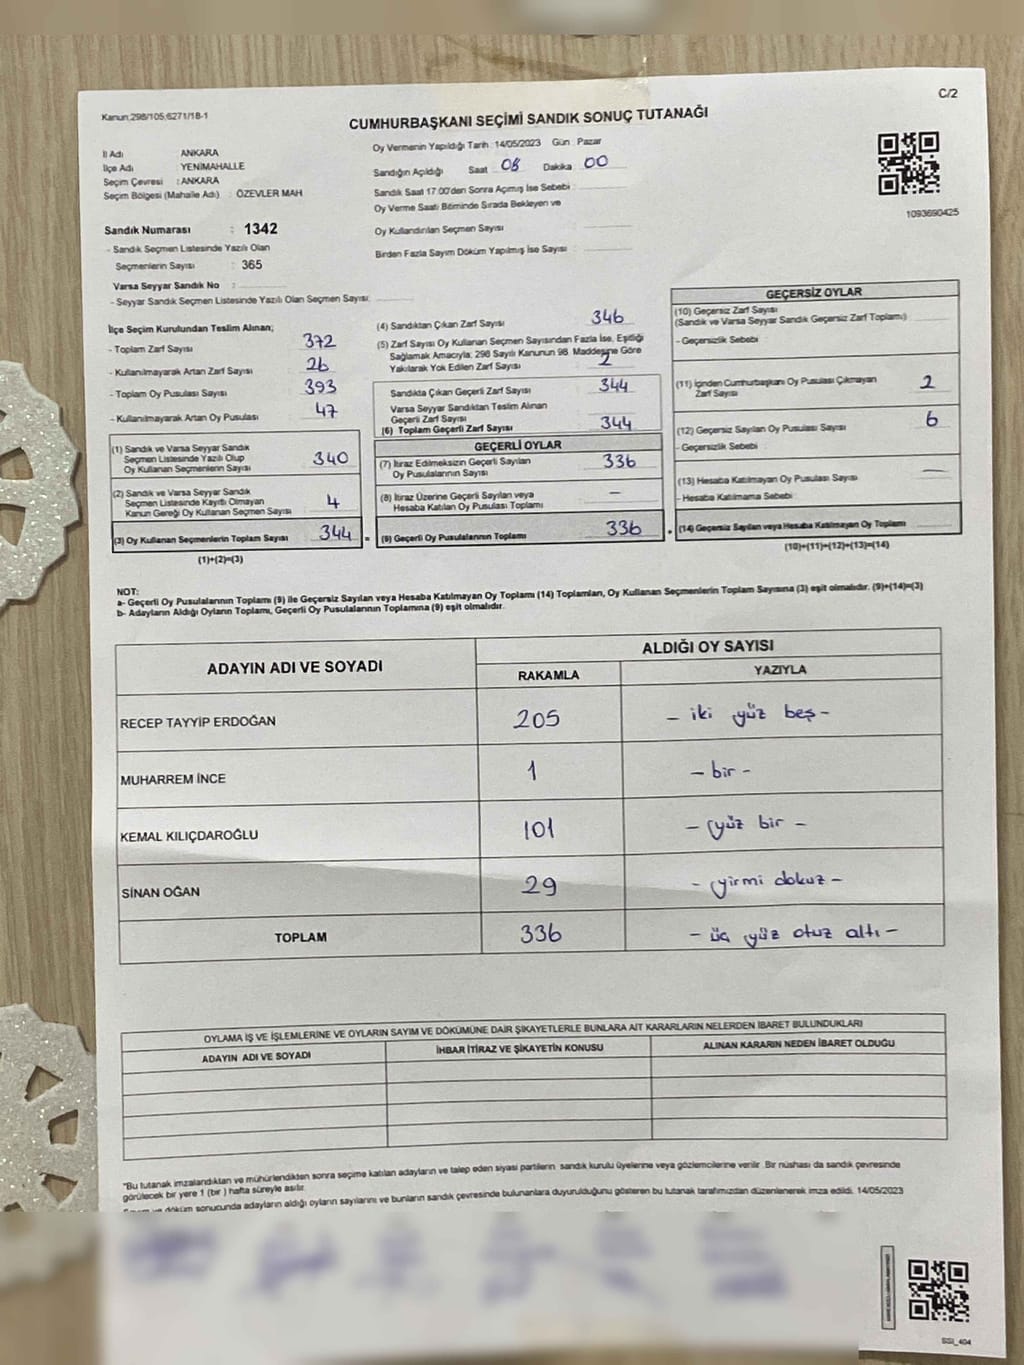 C/2
Kanun:298/105;6271/18-1
CUMHURBAŞKANI SEÇİMİ SANDIK SONUÇ TUTANAĞI
İl Adı ANKARA
İlçe Adı : YENİMAHALLE
Seçim Çevresi : ANKARA
Seçim Bölgesi (Mahalle Adı) : ÖZEVLER MAH
Oy Vermenin Yapıldığı Tarih : 14/05/2023 Gün : Pazar
Sandığın Açıldığı Saat 08 Dakika 00
Sandık Saat 17:00'den Sonra Açımış İse Sebebi :
Oy Verme Saati Bitiminde Sırada Bekleyen ve
Oy Kullandırılan Seçmen Sayısı :
Birden Fazla Sayım Döküm Yapılmış İse Sayısı :
1093690425
Sandık Numarası : 1342
- Sandık Seçmen Listesinde Yazılı Olan
Seçmenlerin Sayısı : 365
Varsa Seyyar Sandık No :
- Seyyar Sandık Seçmen Listesinde Yazılı Olan Seçmen Sayısı:
İlçe Seçim Kurulundan Teslim Alınan;
- Toplam Zarf Sayısı 372
- Kullanılmayarak Artan Zarf Sayısı 26
- Toplam Oy Pusulası Sayısı 393
- Kullanılmayarak Artan Oy Pusulası 47
(1) Sandık ve Varsa Seyyar Sandık
Seçmen Listesinde Yazılı Olup
Oy Kullanan Seçmenlerin Sayısı 340
(2) Sandık ve Varsa Seyyar Sandık
Seçmen Listesinde Kayıtlı Olmayan
Kanun Gereği Oy Kullanan Seçmen Sayısı 4
(3) Oy Kullanan Seçmenlerin Toplam Sayısı 344 =
(1)+(2)=(3)
(4) Sandıktan Çıkan Zarf Sayısı 346
(5) Zarf Sayısı Oy Kullanan Seçmen Sayısından Fazla İse, Eşitliği
Sağlamak Amacıyla; 298 Sayılı Kanunun 98. Maddesine Göre
Yakılarak Yok Edilen Zarf Sayısı 2
Sandıkta Çıkan Geçerli Zarf Sayısı 344
Varsa Seyyar Sandıktan Teslim Alınan
Geçerli Zarf Sayısı
(6) Toplam Geçerli Zarf Sayısı 344
GEÇERLİ OYLAR
(7) İtiraz Edilmeksizin Geçerli Sayılan
Oy Pusulalarının Sayısı 336
(8) İtiraz Üzerine Geçerli Sayılan veya
Hesaba Katılan Oy Pusulası Toplamı –
(9) Geçerli Oy Pusulalarının Toplamı 336 +
GEÇERSİZ OYLAR
(10) Geçersiz Zarf Sayısı
(Sandık ve Varsa Seyyar Sandık Geçersiz Zarf Toplamı)
- Geçersizlik Sebebi
(11) İçinden Cumhurbaşkanı Oy Pusulası Çıkmayan
Zarf Sayısı 2
(12) Geçersiz Sayılan Oy Pusulası Sayısı 6
- Geçersizlik Sebebi
(13) Hesaba Katılmayan Oy Pusulası Sayısı –
- Hesaba Katılmama Sebebi
(14) Geçersiz Sayılan veya Hesaba Katılmayan Oy Toplamı
(10)+(11)+(12)+(13)=(14)
NOT:
a- Geçerli Oy Pusulalarının Toplamı (9) ile Geçersiz Sayılan veya Hesaba Katılmayan Oy Toplamı (14) Toplamları, Oy Kullanan Seçmenlerin Toplam Sayısına (3) eşit olmalıdır. (9)+(14)=(3)
b- Adayların Aldığı Oyların Toplamı, Geçerli Oy Pusulalarının Toplamına (9) eşit olmalıdır.
ADAYIN ADI VE SOYADI ALDIĞI OY SAYISI
RAKAMLA YAZIYLA
RECEP TAYYİP ERDOĞAN 205 – iki yüz beş –
MUHARREM İNCE 1 – bir –
KEMAL KILIÇDAROĞLU 101 – yüz bir –
SİNAN OĞAN 29 – yirmi dokuz –
TOPLAM 336 – üç yüz otuz altı –
OYLAMA İŞ VE İŞLEMLERİNE VE OYLARIN SAYIM VE DÖKÜMÜNE DAİR ŞİKAYETLERLE BUNLARA AİT KARARLARIN NELERDEN İBARET BULUNDUKLARI
ADAYIN ADI VE SOYADI İHBAR İTİRAZ VE ŞİKAYETİN KONUSU ALINAN KARARIN NEDEN İBARET OLDUĞU
*Bu tutanak imzalandıktan ve mühürlendikten sonra seçime katılan adayların ve talep eden siyasi partilerin sandık kurulu üyelerine veya gözlemcilerine verilir. Bir nüshası da sandık çevresinde
görülecek bir yere 1 (bir ) hafta süreyle asılır.
ve döküm sonucunda adayların aldığı oyların sayılarını ve bunların sandık çevresinde bulunanlara duyurulduğunu gösteren bu tutanak tarafımızdan düzenlenerek imza edildi. 14/05/2023
SSI_404